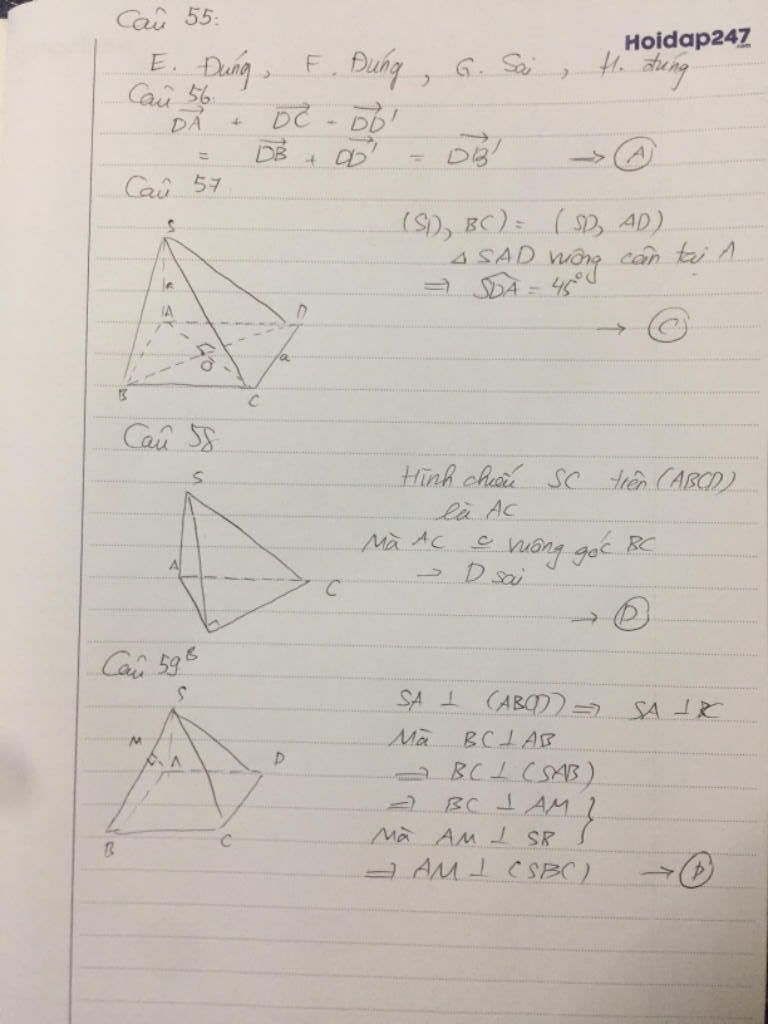 Câu 55:
Hoidap247
.com
E. Đúng, F. Đúng, G. Sai, H. đúng
Câu 56.
DA + DC - DD'
= DB + DD' = DB' → A
Câu 57
(SD, BC) = (SD, AD)
△ SAD vuông cân tại A
⇒ SDA = 45°
→ C
S
a
A
D
O
a
B
C
Câu 58
Hình chiếu SC trên (ABCD)
là AC
Mà AC vuông góc BC
→ D sai
→ D
S
A
C
B
Câu 59
SA ⊥ (ABCD) ⇒ SA ⊥ BC
Mà BC ⊥ AB
⇒ BC ⊥ (SAB)
⇒ BC ⊥ AM }
Mà AM ⊥ SB }
⇒ AM ⊥ (SBC) → D
S
M
A
D
B
C